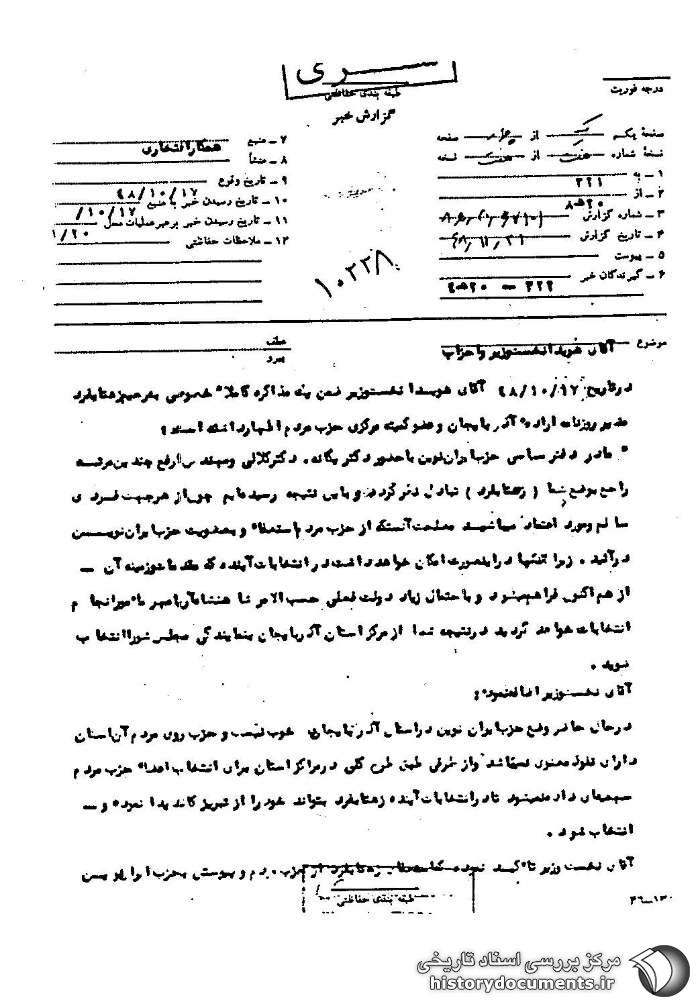 سری
طبقه بندی حفاظتی
گزارش خبر
درجه فوریت
صفحه یکم از صفحه
نسخه شماره از نسخه
۱ – به ۳۲۱
۲ – از ۵۲۰ ه‍ ۸
۳ – شماره گزارش
۴ – تاریخ گزارش
۵ – پیوست
۶ – گیرندگان خبر ۳۲۲ –
۷ – منبع همکار افتخاری
۸ – منشأ
۹ – تاریخ وقوع
۱۰ – تاریخ رسیدن خبر به منبع ۴۸/۱۰/۱۷
۱۱ – تاریخ رسیدن خبر برهبر عملیات محل /۱۰/۱۷
۱۲ – ملاحظات حفاظتی ۱/۲۰
۱۰۲۲۸
موضوع آقای هویدا نخست‌وزیر و احزاب
عطف
پیرو
در تاریخ ۴۸/۱۰/۱۷ آقای هویدا نخست‌وزیر ضمن یک مذاکره کاملا" خصوصی به رحیم زهتابفرد
مدیر روزنامه اراده آذربایجان و عضو کمیته مرکزی حزب مردم اظهار داشته است:
" ما در دفتر سیاسی حزب ایران نوین با حضور دکتر یگانه، دکتر کلالی و مهندس ارفع چندین مرتبه
راجع بوضع شما ( زهتابفرد ) تبادل نظر کردیم و باین نتیجه رسیده‌ایم چون از هر جهت فردی
سالم و مورد اعتماد میباشید مصلحت آنستکه از حزب مردم استعفا و بعضویت حزب ایران نوین
درآئید . زیرا تنها در اینصورت امکان خواهد داشت در انتخابات آینده که مقدمات و زمینه آن –
از هم اکنون فراهم میشود و با احتمال زیاد دولت فعلی حسب الامر شاهنشاه آریامهر مأمور انجام
انتخابات خواهد گردید در نتیجه شما از مرکز استان آذربایجان بنمایندگی مجلس شورا انتخاب
شوید .
آقای نخست‌وزیر اضافه نمود:
در حال حاضر وضع حزب ایران نوین در استان آذربایجان خوب نیست و حزب روی مردم آن استان
دارای نفوذ معنوی نمیباشد و از طرفی طبق طرح کلی در مراکز استان برای انتخاب اعضاء حزب مردم
سهمیه‌ای داده نمیشود تا در انتخابات آینده زهتابفرد بتواند خود را از تبریز کاندیدا نموده و –
انتخاب شود .
آقای نخست وزیر تاکید نموده که استعفای زهتابفرد از حزب مردم و پیوستن بحزب ایران نوین
طبقه بندی حفاظتی
۳۶–۱۳۰
مرکز بررسی اسناد تاریخی
historydocuments.ir